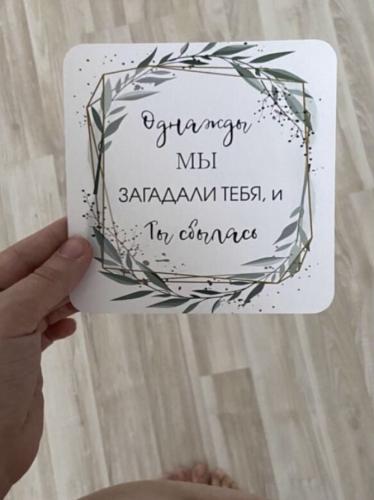 Однажды
МЫ
ЗАГАДАЛИ ТЕБЯ, и
Ты сбылась